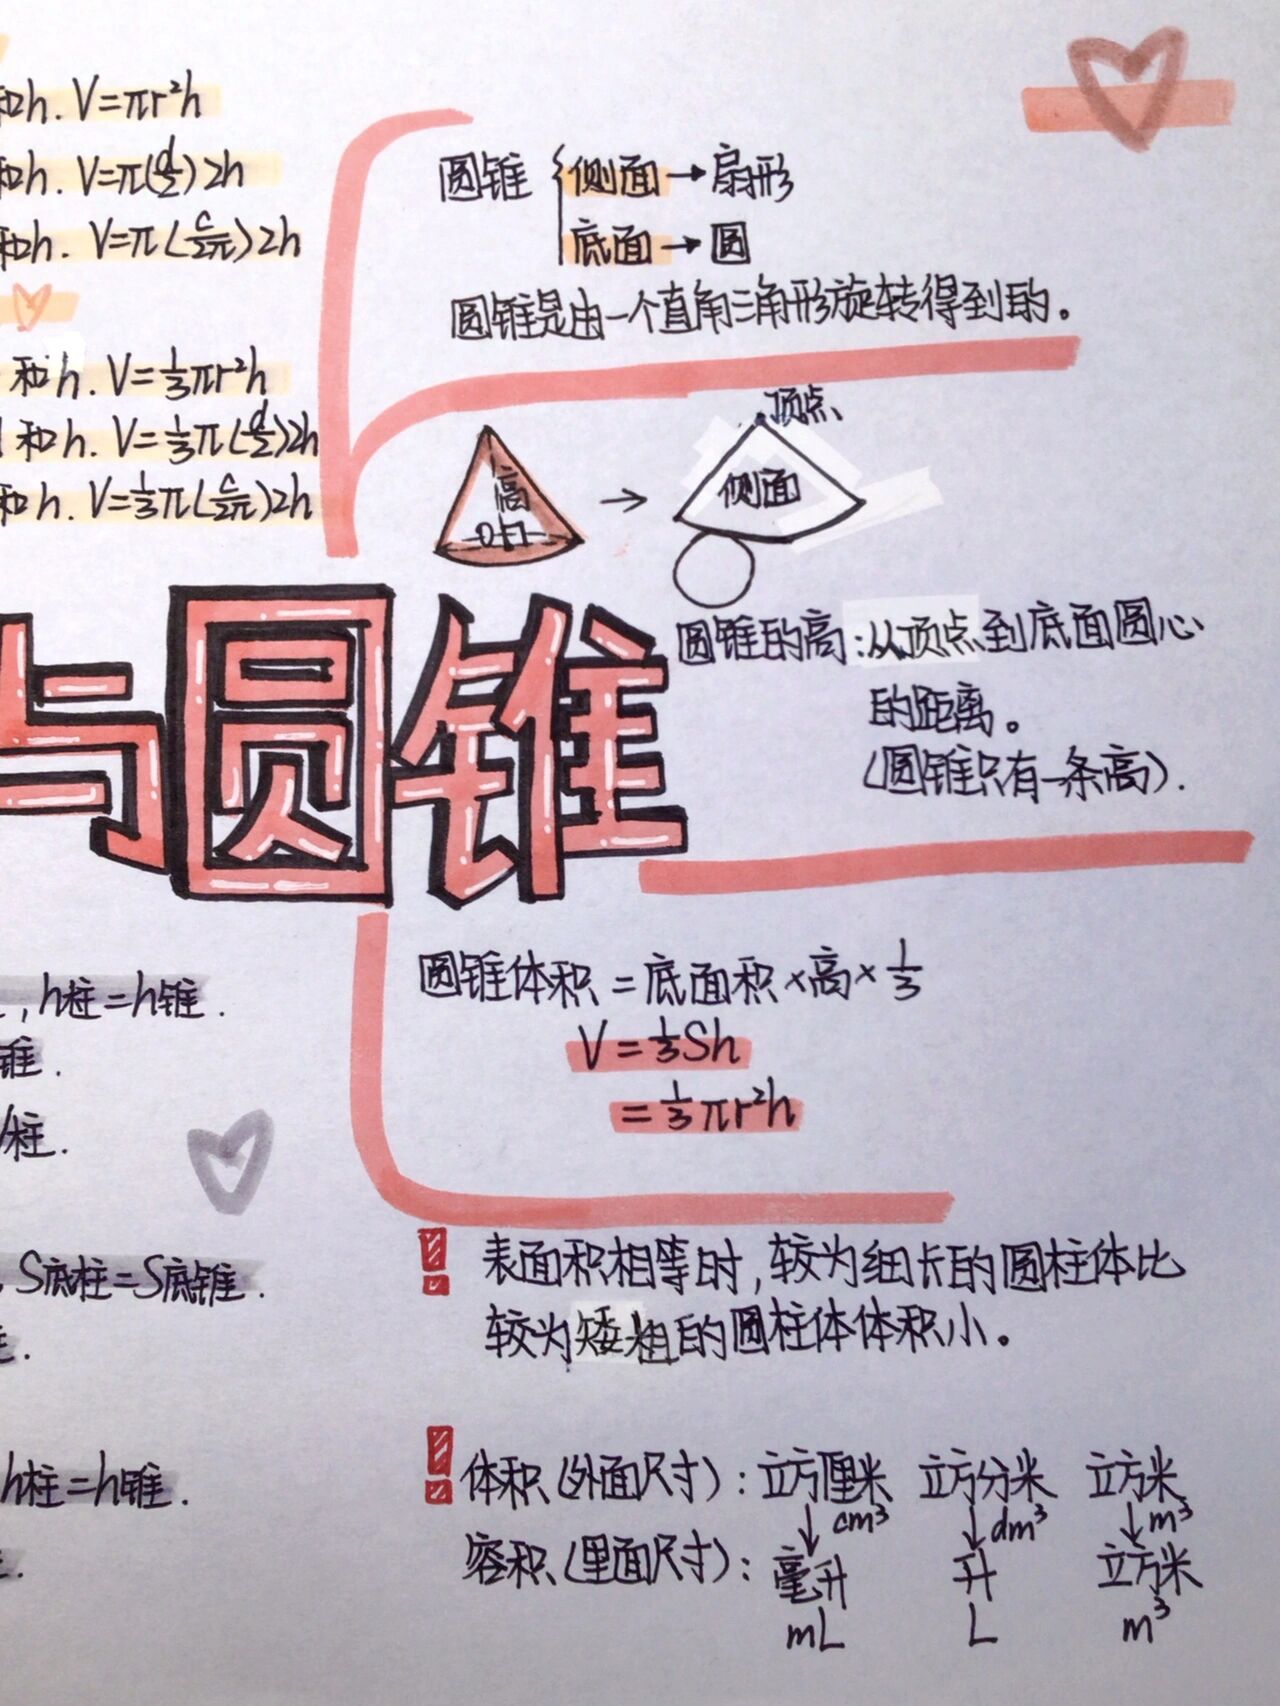 和h. V=πr²h
和h. V=π(d/2)2h
和h. V=π(c/2π)2h
和h. V=1/3πr²h
和h. V=1/3π(d/2)2h
和h. V=1/3π(c/2π)2h
圆锥 { 侧面→扇形
底面→圆
圆锥是由一个直角三角形旋转得到的。
顶点
高
侧面
圆锥的高:从顶点到底面圆心
的距离。
(圆锥只有一条高).
与圆锥
圆锥体积=底面积×高×1/3
V=1/3Sh
=1/3πr²h
,h柱=h锥.
锥.
柱.
S底柱=S底锥.
h柱=h锥.
表面积相等时,较为细长的圆柱体比
较为矮粗的圆柱体体积小。
体积(外面尺寸):立方厘米 立方分米 立方米
↓cm³ ↓dm³ ↓m³
容积(里面尺寸):毫升 升 立方米
mL L m³